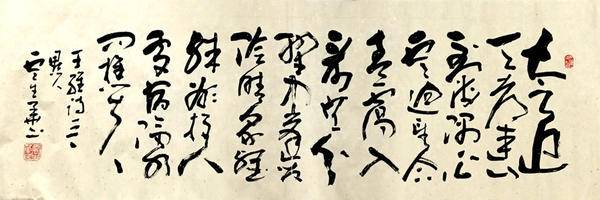 太乙近
天都連山
到海隅白
雲迴望合
青靄入
看無分
野中峰變
陰晴衆壑
殊欲投人
處宿隔水
問樵夫
王維詩